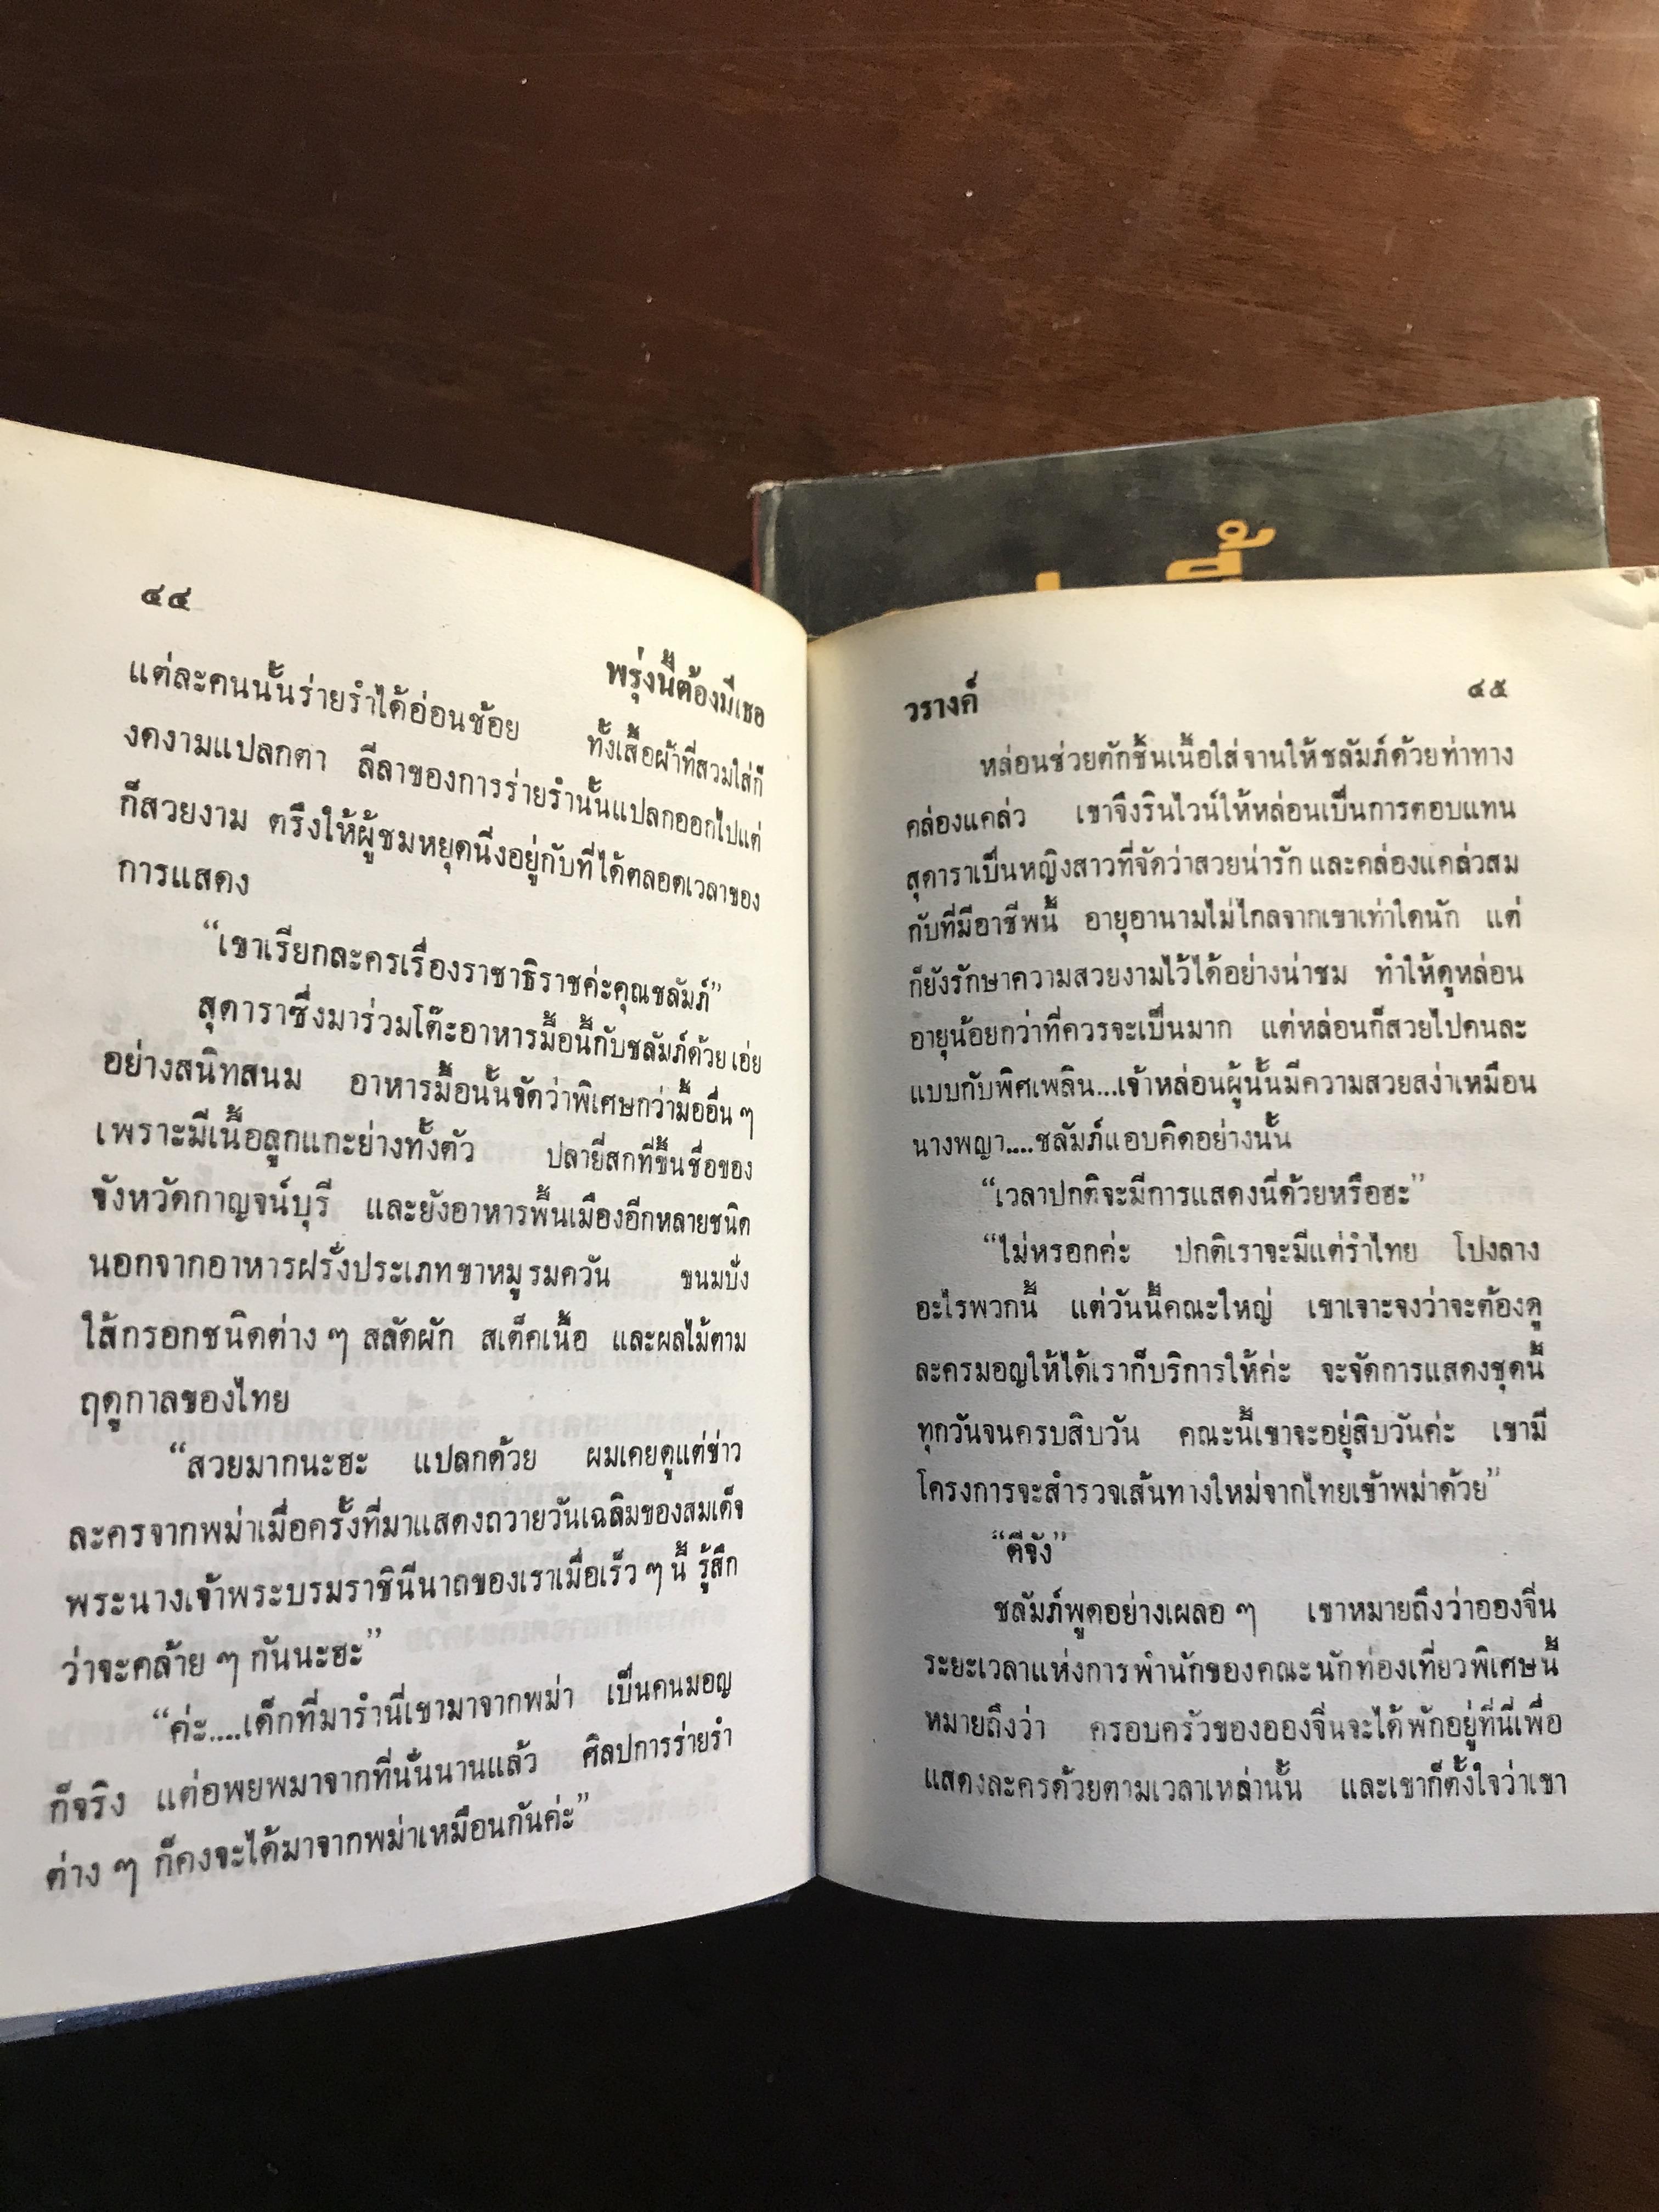 ๔๔
พรุ่งนี้ต้องมีเธอ
แต่ละคนนั้นร่ายรำได้อ่อนช้อย ทั้งเสื้อผ้าที่สวมใส่ก็
งดงามแปลกตา ลีลาของการร่ายรำนั้นแปลกออกไปแต่
ก็สวยงาม ตรึงให้ผู้ชมหยุดนิ่งอยู่กับที่ได้ตลอดเวลาของ
การแสดง
“เขาเรียกละครเรื่องราชาธิราชค่ะคุณชลัมภ์”
สุดาราซึ่งมาร่วมโต๊ะอาหารมื้อนี้กับชลัมภ์ด้วย เอ่ย
อย่างสนิทสนม อาหารมื้อนั้นจัดว่าพิเศษกว่ามื้ออื่น ๆ
เพราะมีเนื้อลูกแกะย่างทั้งตัว ปลายี่สกที่ขึ้นชื่อของ
จังหวัดกาญจน์บุรี และยังอาหารพื้นเมืองอีกหลายชนิด
นอกจากอาหารฝรั่งประเภทขาหมูรมควัน ขนมบั่ง
ใส้กรอกชนิดต่าง ๆ สลัดผัก สเต็คเนื้อ และผลไม้ตาม
ฤดูกาลของไทย
“สวยมากนะฮะ แปลกด้วย ผมเคยดูแต่ข่าว
ละครจากพม่าเมื่อครั้งที่มาแสดงถวายวันเฉลิมของสมเด็จ
พระนางเจ้าพระบรมราชินีนาถของเราเมื่อเร็ว ๆ นี้ รู้สึก
ว่าจะคล้าย ๆ กันนะฮะ”
“ค่ะ....เด็กที่มารำนี่เขามาจากพม่า เป็นคนมอญ
ก็จริง แต่อพยพมาจากที่นั่นนานแล้ว ศิลปการร่ายรำ
ต่าง ๆ ก็คงจะได้มาจากพม่าเหมือนกันค่ะ”
วรางค์
๔๕
หล่อนช่วยตักชิ้นเนื้อใส่จานให้ชลัมภ์ด้วยท่าทาง
คล่องแคล่ว เขาจึงรินไวน์ให้หล่อนเป็นการตอบแทน
สุดาราเป็นหญิงสาวที่จัดว่าสวยน่ารัก และคล่องแคล่วสม
กับที่มีอาชีพนี้ อายุอานามไม่ไกลจากเขาเท่าใดนัก แต่
ก็ยังรักษาความสวยงามไว้ได้อย่างน่าชม ทำให้ดูหล่อน
อายุน้อยกว่าที่ควรจะเป็นมาก แต่หล่อนก็สวยไปคนละ
แบบกับพิศเพลิน...เจ้าหล่อนผู้นั้นมีความสวยสง่าเหมือน
นางพญา....ชลัมภ์แอบคิดอย่างนั้น
“เวลาปกติจะมีการแสดงนี่ด้วยหรือฮะ”
“ไม่หรอกค่ะ ปกติเราจะมีแต่รำไทย โปงลาง
อะไรพวกนี้ แต่วันนี้คณะใหญ่ เขาเจาะจงว่าจะต้องดู
ละครมอญให้ได้เราก็บริการให้ค่ะ จะจัดการแสดงชุดนี้
ทุกวันจนครบสิบวัน คณะนี้เขาจะอยู่สิบวันค่ะ เขามี
โครงการจะสำรวจเส้นทางใหม่จากไทยเข้าพม่าด้วย”
“ดีจัง”
ชลัมภ์พูดอย่างเผลอ ๆ เขาหมายถึงว่าอองจิ่น
ระยะเวลาแห่งการพำนักของคณะนักท่องเที่ยวพิเศษนี้
หมายถึงว่า ครอบครัวของอองจิ่นจะได้พักอยู่ที่นี่เพื่อ
แสดงละครด้วยตามเวลาเหล่านั้น และเขาก็ตั้งใจว่าเขา